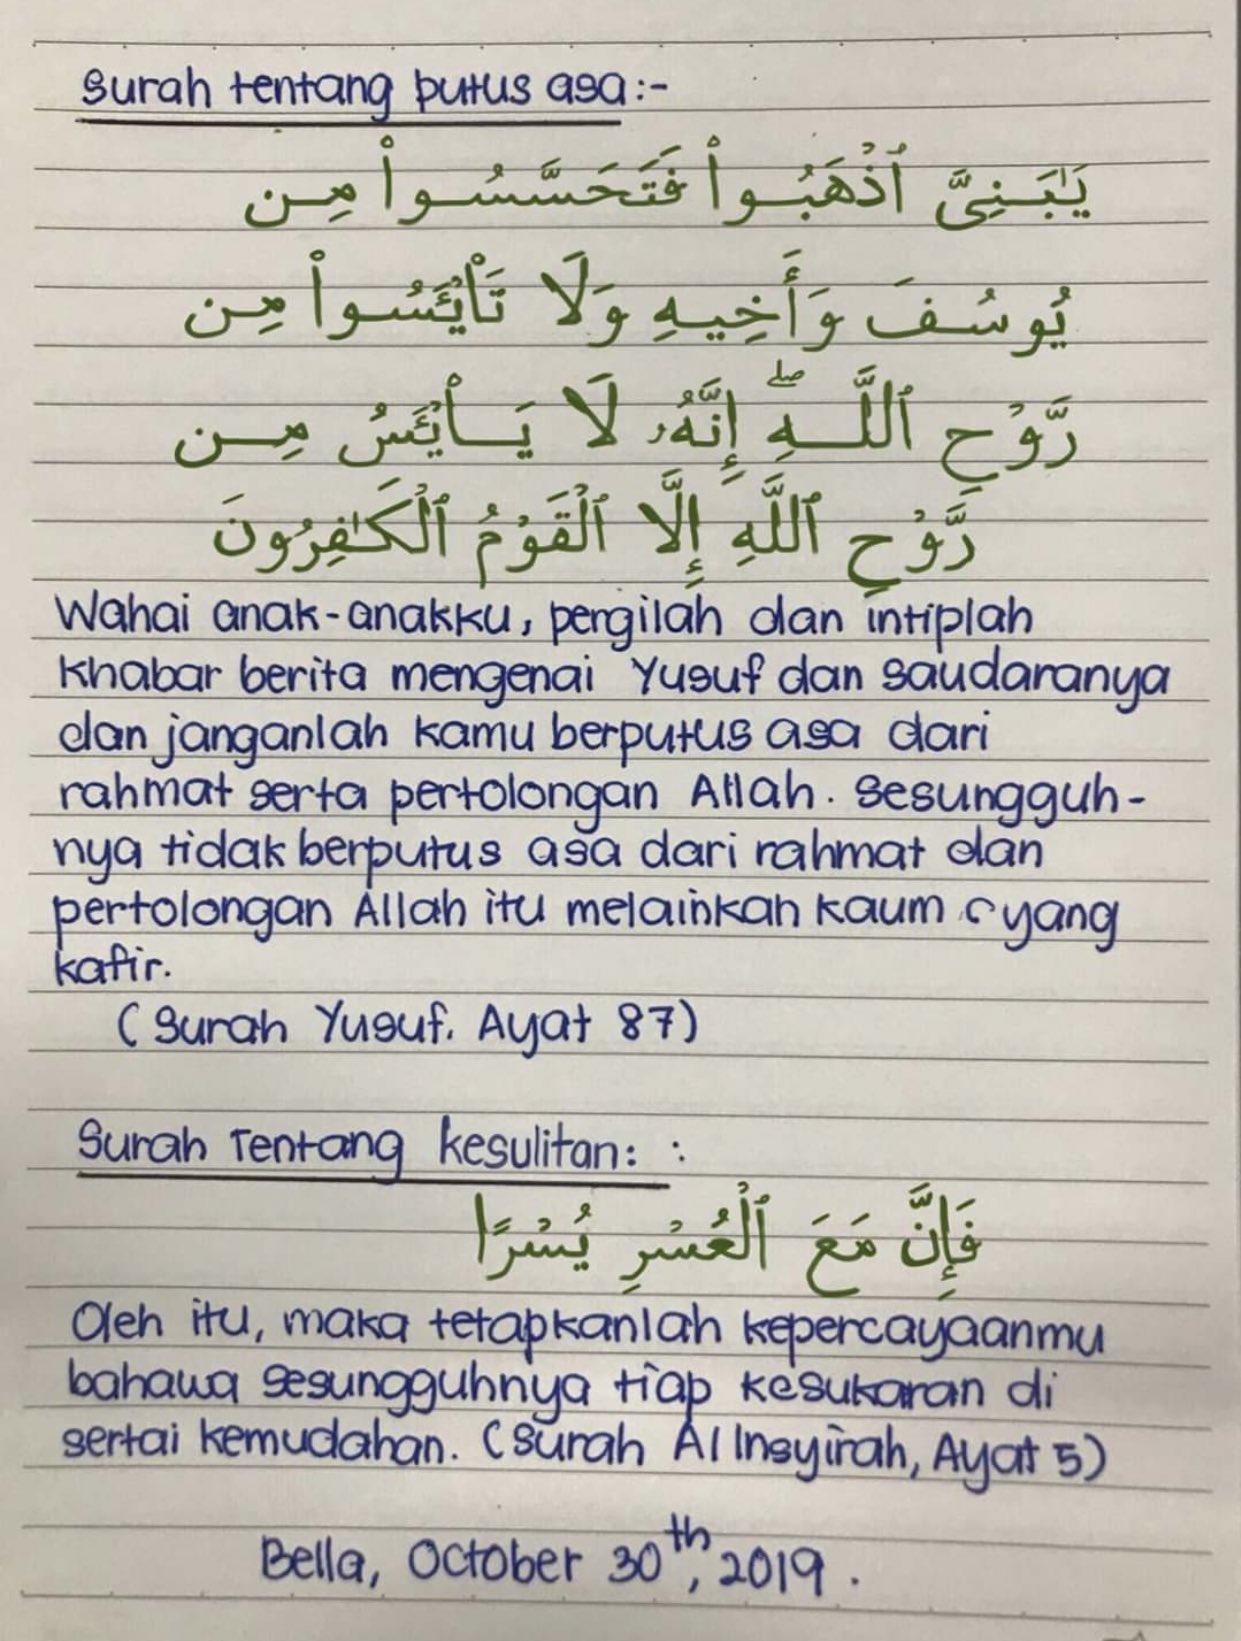 Surah tentang putus asa:-
يَـٰبَنِىَّ ٱذْهَبُوا۟ فَتَحَسَّسُوا۟ مِن
يُوسُفَ وَأَخِيهِ وَلَا تَا۟يْـَٔسُوا۟ مِن
رَّوْحِ ٱللَّـهِ ۖ إِنَّهُۥ لَا يَا۟يْـَٔسُ مِن
رَّوْحِ ٱللَّهِ إِلَّا ٱلْقَوْمُ ٱلْكَـٰفِرُونَ
Wahai anak-anakku, pergilah dan intiplah
khabar berita mengenai Yusuf dan saudaranya
dan janganlah kamu berputus asa dari
rahmat serta pertolongan Allah. Sesungguh-
nya tidak berputus asa dari rahmat dan
pertolongan Allah itu melainkan kaum yang
kafir.
(Surah Yusuf. Ayat 87)
Surah Tentang kesulitan: :
فَإِنَّ مَعَ ٱلْعُسْرِ يُسْرًا
Oleh itu, maka tetapkanlah kepercayaanmu
bahawa sesungguhnya tiap kesukaran di
sertai kemudahan. (Surah Al Insyirah, Ayat 5)
Bella, October 30th, 2019.